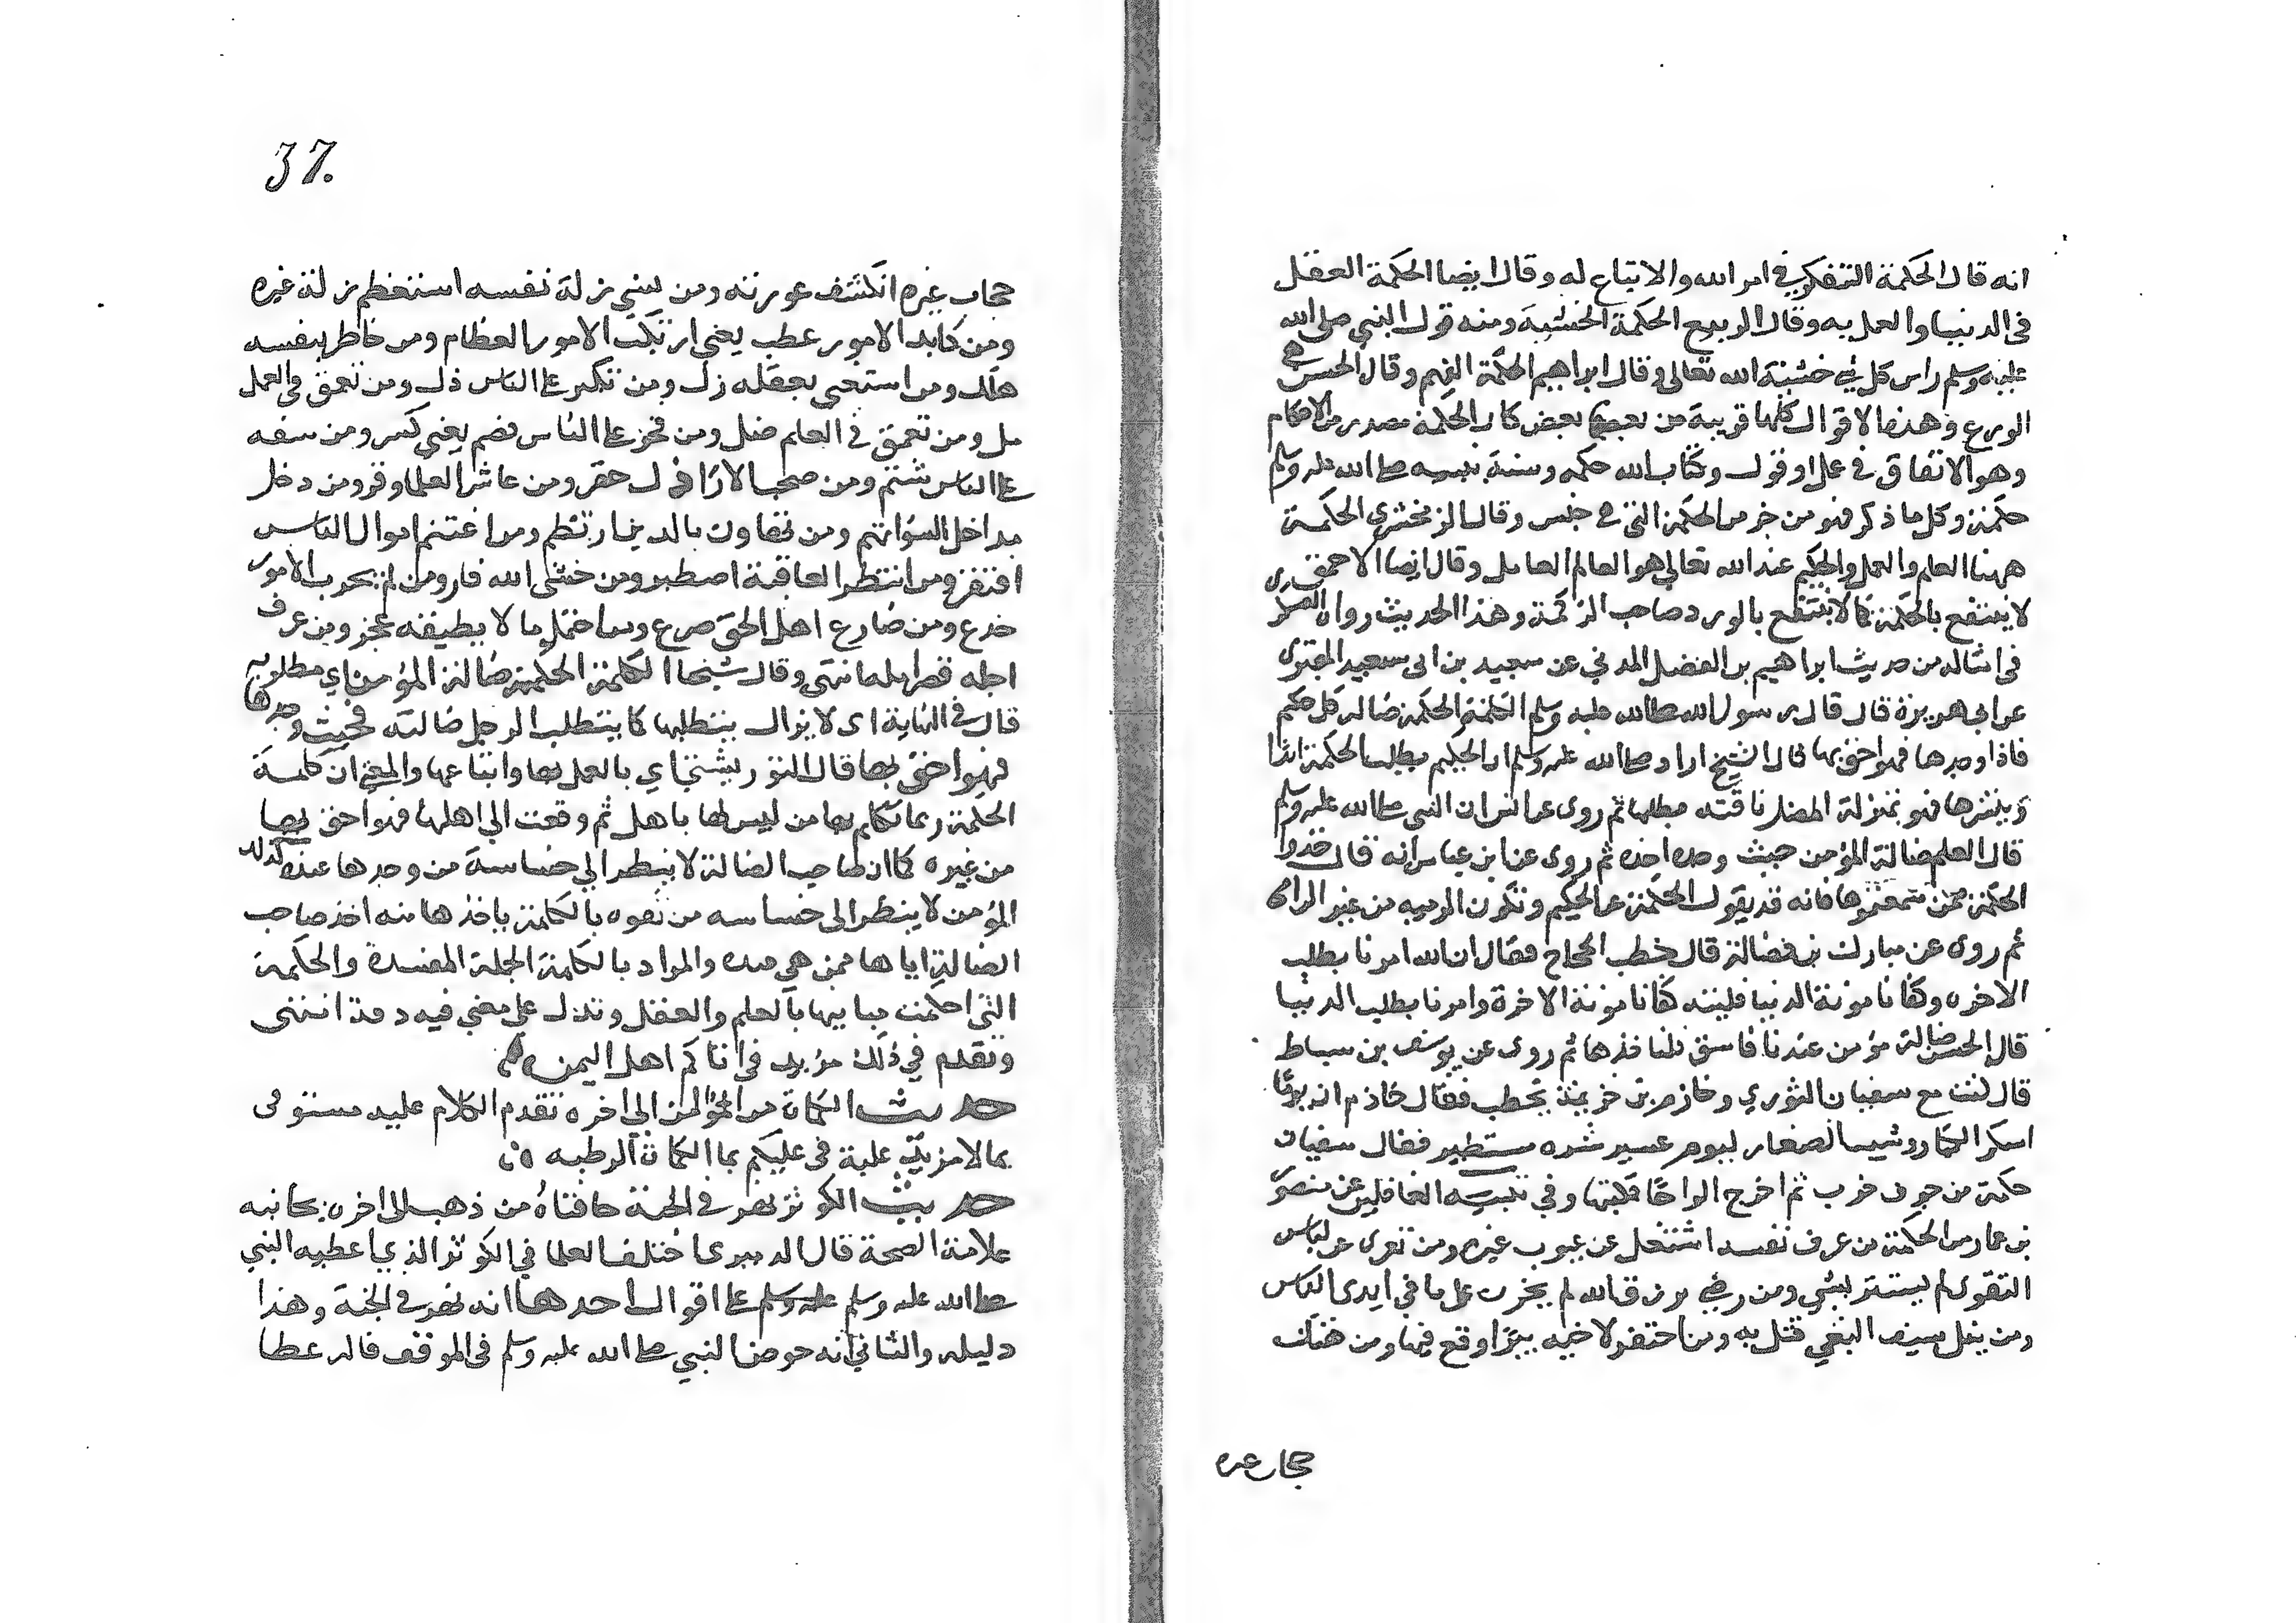 انه قال الحكمة التفكر في امر الله والاتباع له وقال ايضا الحكمة العقل
في الدنيا والعمل به وقال الربيع الحكمة الخشية ومنه قول النبي صلى الله
عليه وسلم راس كل شي خشية الله تعالى وقال ابراهيم الحكمة الفهم وقال الحسن هي
الورع وهذه الاقوال كلها قريبة من بعضها بعض كان الحكمة مصدر من الاحكام
وهو الاتفاق في عمل او قول وكتاب الله حكمه وسنة نبيه صلى الله عليه وسلم
حكمة وكل ما ذكر فهو من جز من الحكمة التي هي جنس وقال الزمخشري الحكمة
ههنا العلم والعمل والحكيم عند الله تعالى هو العالم العامل وقال ايضا الاحمق
لا ينتفع بالحكمة كما لا ينتفع بالورد صاحب الزكمة وهذا الحديث رواه العسكري
في امثاله من حديث ابراهيم بن الفضل المدني عن سعيد بن ابي سعيد المقبري
عن ابي هريرة قال قال رسول الله صلى الله عليه وسلم الكلمة الحكمة ضالة كل حكيم
فاذا وجدها فهو احق بها قال الشيخ اراد صلى الله عليه وسلم ان الحكيم يطلب الحكمة ابدا
وينشدها فهو بمنزلة المضل ناقته يطلبها ثم روى عن انس ان النبي صلى الله عليه وسلم
قال العلم ضالة المؤمن حيث وجده اخذه ثم روى عن ابن عباس انه قال خذوا
الحكمة ممن سمعتموها فانه قد يقول الحكمة غير الحكيم وتكون الرميه من غير الرامي
ثم روى عن مبارك بن فضالة قال خطب الحجاج فقال ان الله امرنا بطلب
الاخره وكفانا مونة الدنيا فليته كفانا مونة الاخرة وامرنا بطلب الدنيا
قال الحسن ضالة مؤمن عند فاسق فلناخذها ثم روى عن يوسف بن سباط
قال كنت مع سفيان الثوري وخازم بن خزيمة يخطب فقال خازم ان يوما
اسكر الكبار وشيب الصغار ليوم عسير شره مستطير فقال سفيان
حكمة من جوف خرب ثم اخرج الواحا فكتبها وفي تنبيه الغافلين عن منصور
بن عمار من الحكمة من عرف نفسه اشتغل عن عيوب غيره ومن تعرى عن لباس
التقوى لم يستتر بشي ومن رضي برزق الله لم يحزن على ما في ايدى الناس
ومن سل سيف البغي قتل به ومن احتفر لاخيه بيرا وقع فيها ومن هتك
حجاب غيره
37.
حجاب غيره انكشف عورته ومن ينسي زلة نفسه استعظم زلة غيره
ومن كابد الامور عطب يعني ارتكب الامور العظام ومن خاطر بنفسه
هلك ومن استغنى بعقله زل ومن تكبر على الناس ذل ومن تعمق في العمل
مل ومن تعمق في العلم ضل ومن فخر على الناس قصم يعني كسر ومن سفه
على الناس شتم ومن صحب الاراذل حقر ومن عاشر العلما وقر ومن دخل
مداخل السؤ اتهم ومن تهاون بالدين ارتطم ومن اغتنم اموال الناس
افتقر ومن انتظر العاقبة اصطبر ومن خشى الله فاز ومن لم يجرب الأمور
خدع ومن صارع اهل الحق صرع ومن احتمل ما لا يطيقه عجز ومن عرف
اجله قصر امله انتهى وقال شيخنا الكلمة الحكمة ضالة المؤمن اي مطلوبه
قال في النهاية اى لا يزال يتطلبها كما يتطلب الرجل ضالته فحيث وجدها
فهو احق بها قال التوربشتي اي بالعمل بها واتباعها والمعنى ان كلمة
الحكمة ربما تكلم بها من ليس لها باهل ثم وقعت الي اهلها فهو احق بها
من غيره كما ان صاحب الضالة لا ينظر الي خساسة من وجدها عنده كذلك
المؤمن لا ينظر الى خساسه من تفوه بالكلمة ياخذها منه اخذ صاحب
الضالة اياها ممن هي عنده والمراد بالكلمة الجملة المفيدة والحكمة
التي احكمت مبانيها بالعلم والعقل وتدل علي معني فيه دقة انتهى
وتقدم في ذلك مزيد في اتاكم اهل اليمن
حديث الكماة من المن الي اخره تقدم الكلام عليه مستوفى
بما لا مزيد علية في عليكم بما الكماة الرطبه
حديث الكوثر نهر في الجنة حافتاه من ذهب الى اخره بجانبه
علامة الصحة قال الدميرى اختلف العلما في الكوثر الذي اعطيه النبي
صلى الله عليه وسلم عليه وسلم على اقوال احدها انه نهر في الجنة وهذا
دليله والثاني انه حوض النبي صلى الله عليه وسلم في الموقف قاله عطا